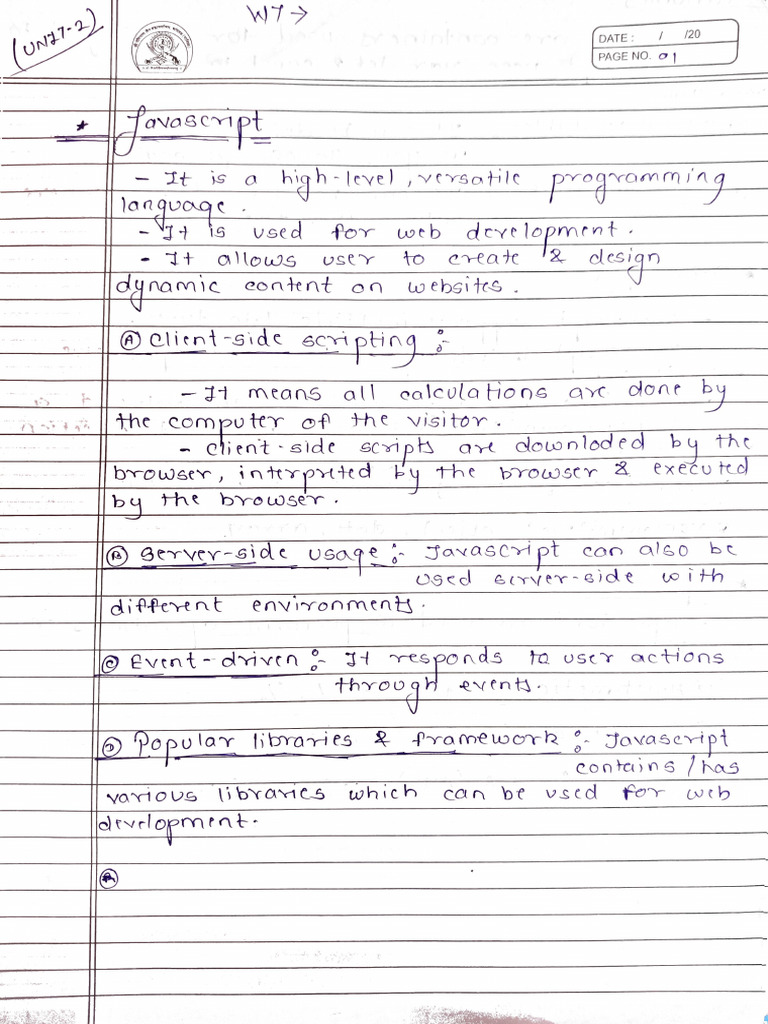 (UNIT-2)
WT →
DATE: / /20
PAGE NO. 01
* Javascript
- It is a high-level, versatile programming
language.
- It is used for web development.
- It allows user to create & design
dynamic content on websites.
(A) client-side scripting :-
- It means all calculations are done by
the computer of the visitor.
- client-side scripts are downloded by the
browser, interpreted by the browser & executed
by the browser.
(B) Server-side usage :- Javascript can also be
used server-side with
different environments.
(C) Event-driven :- It responds to user actions
through events.
(D) Popular libraries & framework :- Javascript
contains / has
various libraries which can be used for web
development.